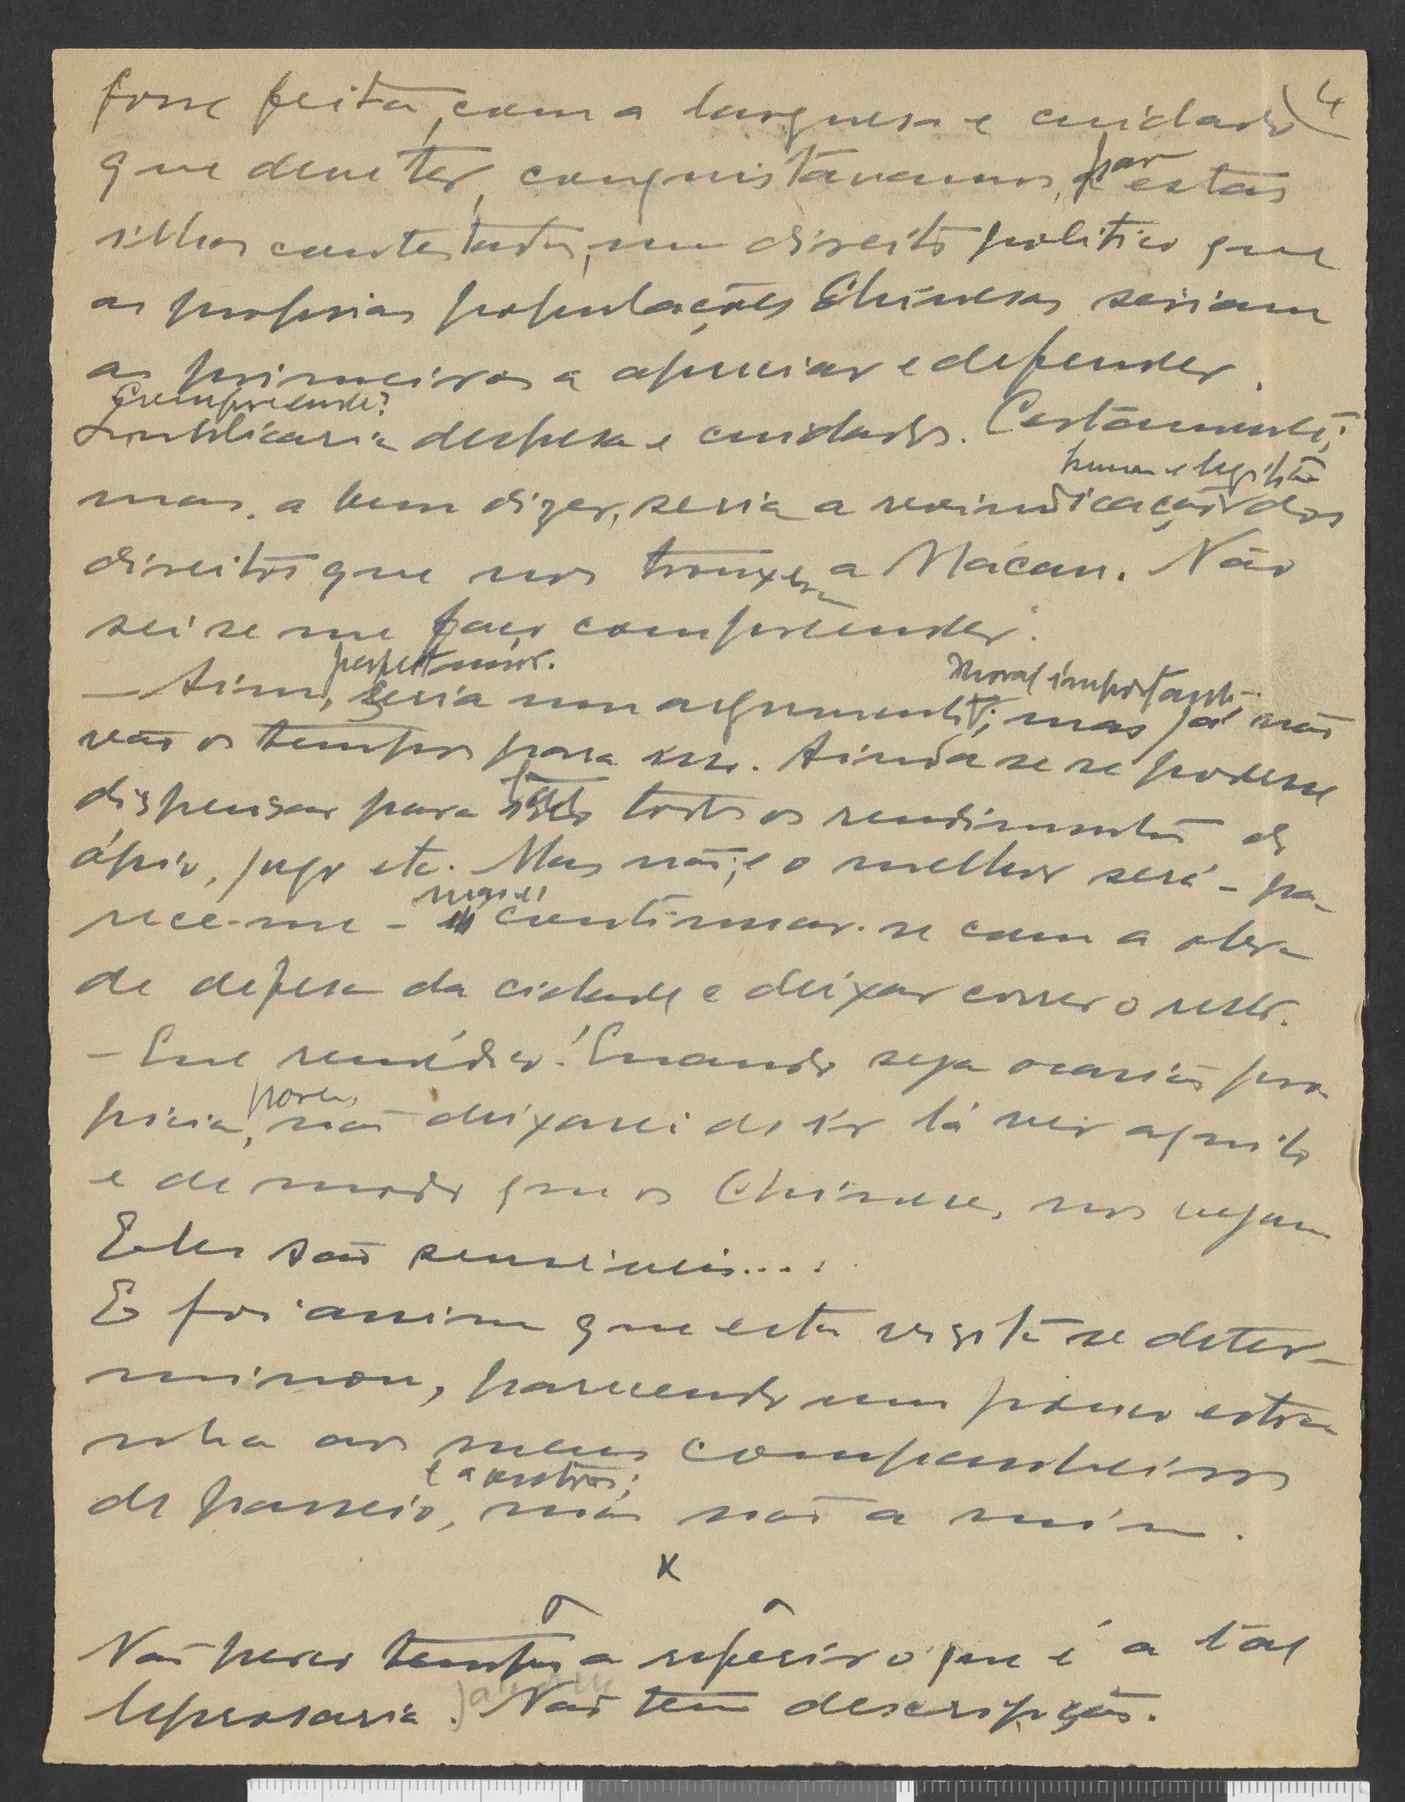 4
fosse feita, com a largueza e cuidado
que deve ter, conquistavamos, por estas
ilhas contestadas, um direito politico que
as proprias populações Chinesas seriam
as primeiras a apreciar e defender.
Comprehende?
despesa e cuidados. Certamente;
humana e legitima
mas, a bem dizer, seria a reivindicação dos
direitos que nos trouxera a Macau. Não
sei se me faço compreender.
perfeitamente.
moral importante
— Sim, seria um argumento; mas já não
vão os tempos para isso. Ainda se se podesse
dispensar para isso todos os rendimentos do
ópio, jogo etc. Mas não; e o melhor será - pa-
rece-me - continuar-se com a obra
de defesa da cidade e deixar correr o resto.
— Que remédio! Quando seja ocasião pro-
porem,
picia, não deixarei de ir lá ver aquilo
e de modo que os Chineses nos vejam
Eles são sensiveis....
E foi assim que esta visita se deter-
minou, parecendo um pouco estra-
nha aos meus companheiros
e a outros;
de passeio, mas não a mim.
x
Não perco tempo a referir o que é a tal
leprosaria. Não tem descripção.